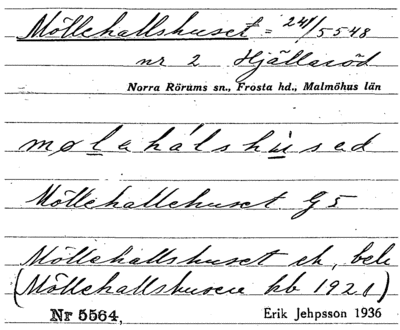 Möllehallshuset = 241/5548
nr 2 Hjällaröd
Norra Rörums sn., Frosta hd., Malmöhus län
mølahálshùsed
Möllehallehuset G5
Möllehallshuset ek, beb
(Möllehallshusen kb 1921)
Nr 5564, Erik Jehpsson 1936